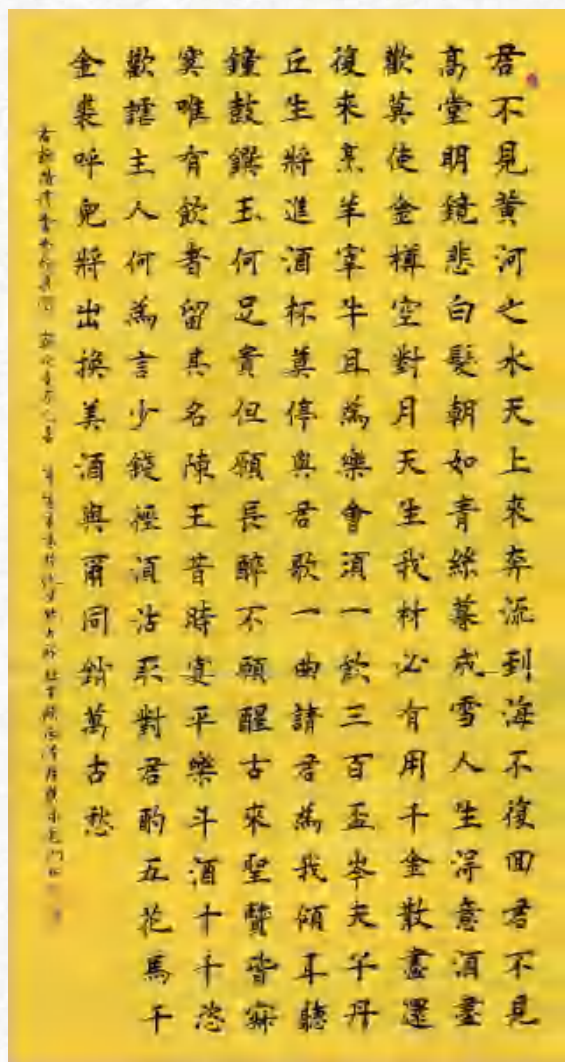 君不見黃河之水天上來奔流到海不復回君不見
高堂明鏡悲白髮朝如青絲暮成雪人生得意湏盡
歡莫使金樽空對月天生我材必有用千金散盡還
復來烹羊宰牛且為樂會湏一飲三百盃岑夫子丹
丘生將進酒杯莫停與君歌一曲請君為我傾耳聽
鐘鼓饌玉何足貴但願長醉不願醒古來聖賢皆寂
寞唯有飲者留其名陳王昔時宴平樂斗酒十千恣
歡謔主人何為言少錢徑湏沽取對君酌五花馬千
金裘呼兒將出換美酒與爾同銷萬古愁